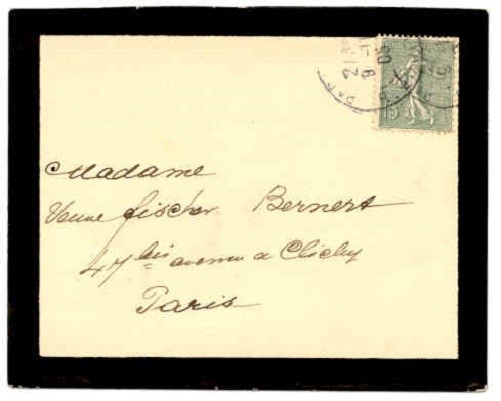 21
8
03
PAR
15
Madame
Veuve Fischer Bernert
47 bis avenue de Clichy
Paris